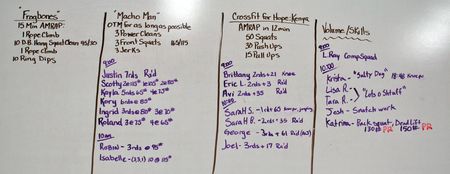 "Frogbones"
15 Min AMRAP:
1 Rope Climb
10 D.B. Hang Squat Clean 45/30
1 Rope Climb
10 Ring Dips
"Macho Man"
OTM for as long as possible
3 Power Cleans
3 Front Squats 185/115
3 Jerks
9:00
Justin 7rds Rx'd
Scotty
Kayla 5rds 65#
Kory 5rds @ 85#
Ingrid 3rds @ 80#
Roland 3@ 75# 4@ 65#
10:00
Robin - 3rds @ 95#
Isabelle - (1,3,1) 10 @ 115#
CrossFit for Hope: Kenya
AMRAP in 12min
50 Squats
30 Push Ups
15 Pull Ups
9:00
Brittany 2rds + 21 Knee
Eric L. 2rds + 3 Rx'd
Avi 2rds + 35 Rx'd
10:00
Sarah S. - 1rds
Sarah P. - 2rds + 35 Rx'd
George - 3rds + 61 Rx'd
Joel - 3rds + 17 Rx'd
Volume/Skills
9:00
L-Ray Comp Squad
10:00
Krista - "Salty Dog" 18:48
Lisa R. -
Tara R. - "Lots o Stuff"
Josh - Snatch work
Katrina - Back squat, Deadlift
130# PR 150# PR